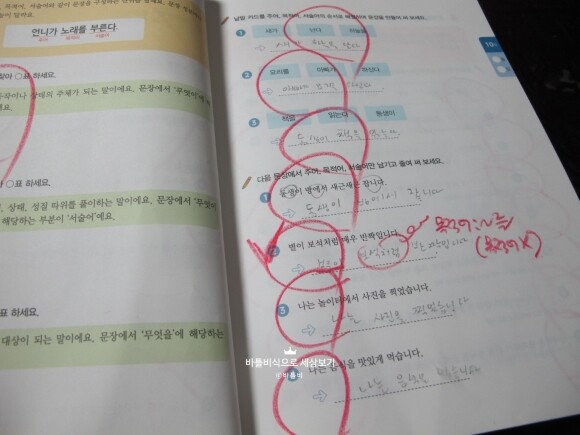 언니가 노래를 부른다.
주어 목적어 서술어
찾아 ○표 하세요.
동작이나 상태의 주체가 되는 말이에요. 문장에서 '무엇이'에
○표 하세요.
상태, 성질 따위를 풀이하는 말이에요. 문장에서 '무엇
해당하는 부분이 '서술어'예요.
표 하세요.
대상이 되는 말이에요. 문장에서 '무엇을'에 해당하는
낱말 카드를 주어, 목적어, 서술어의 순서로 배열하여 문장을 만들어 써 보세요.
1 새가 난다 하늘을
새가 하늘을 난다
2 요리를 아빠가 하신다
아빠가 요리를 하신다
3 책을 읽는다 동생이
동생이 책을 읽는다
다음 문장에서 주어, 목적어, 서술어만 남기고 줄여 써 보세요.
1 동생이 밤에 새근새근 잡니다.
동생이 잡니다
2 별이 보석처럼 매우 반짝입니다.
별이 보석처럼 반짝입니다
목적어:~을/를
(목적어X)
3 나는 놀이터에서 사진을 찍었습니다.
나는 사진을 찍었습니다
4 나는 음식을 맛있게 먹습니다.
나는 음식을 먹습니다
바틀비식으로 세상보기